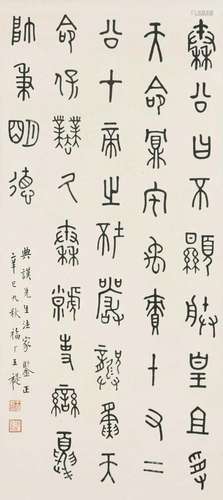 秦公曰不顯朕皇且受
天命鼏宅禹賷十又二
公才帝之坏龏夤天
命保業氒秦虩事蠻夏
帥秉明德
典謨先生法家鑒正
辛巳九秋福厂王禔